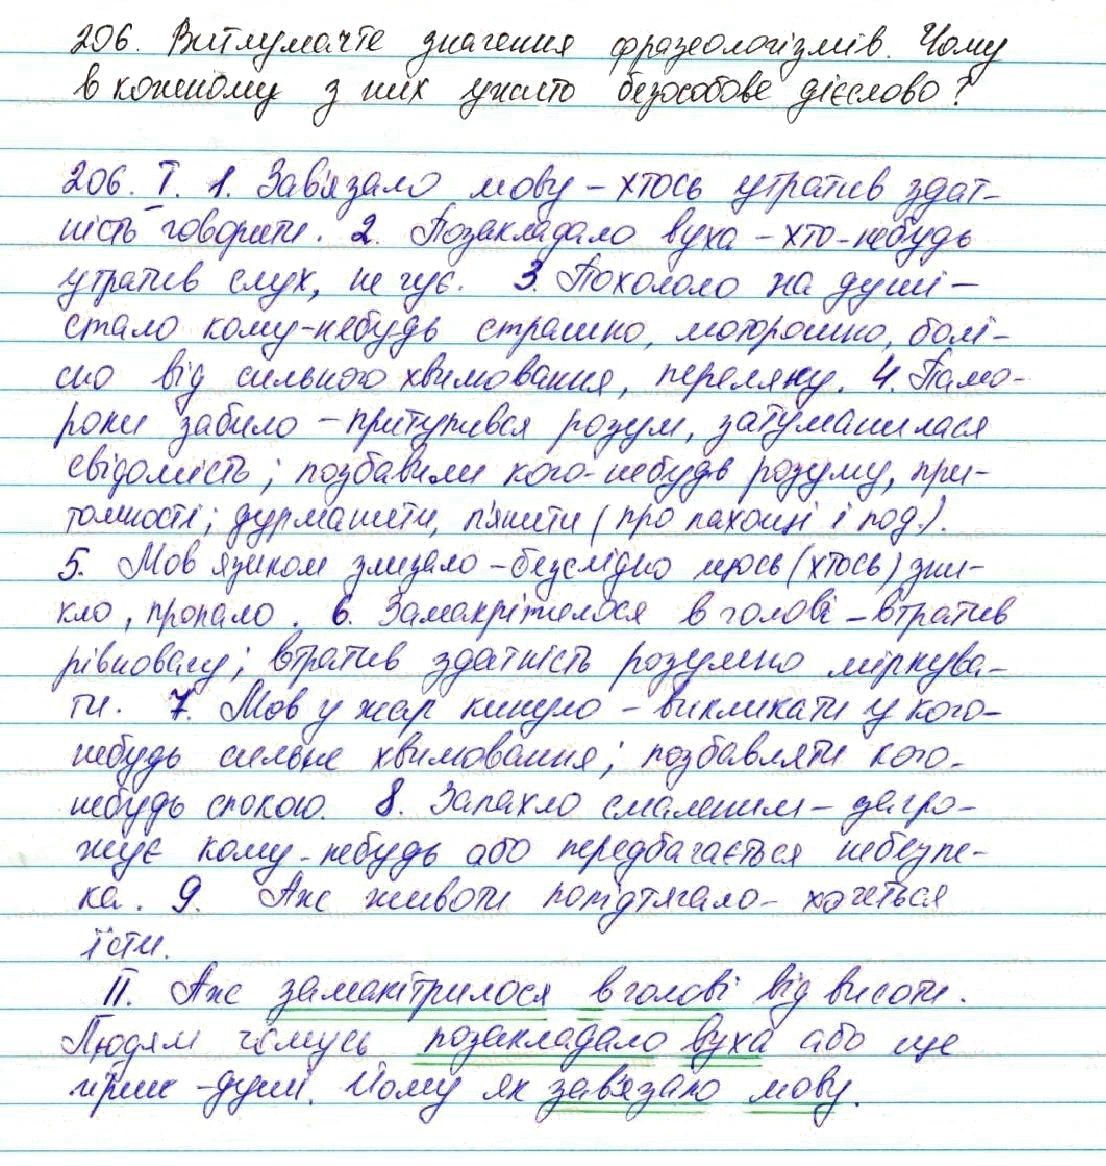 206. Витлумачте значення фразеологізмів. Чому
в кожному з них ужито безособове дієслово?
206. І. 1. Зав'язало мову – хтось утратив здат-
ність говорити. 2. Позакладало вуха – хто-небудь
утратив слух, не чує. 3. Похололо на душі –
стало кому-небудь страшно, моторошно, болі-
сно від сильного хвилювання, переляку. 4. Памо-
роки забило – притупився розум, затуманилася
свідомість; позбавили кого-небудь розуму, при-
томності; дурманити, п'янити (про пахощі і под.).
5. Мов язиком злизало – безслідно щось (хтось) зни-
кло, пропало. 6. Замакрітилося в голові – втратив
рівновагу; втратив здатність розумно міркува-
ти. 7. Мов у жар кинуло – викликати у кого-
небудь сильне хвилювання; позбавляти кого-
небудь спокою. 8. Запахло смаленим – загро-
жує кому-небудь або передбачається небезпе-
ка. 9. Аж животи попідтягало – хочеться
їсти.
ІІ. Аж замакітрилося в голові від висоти.
Людям чомусь позакладало вуха або ще
гірше – душі. Йому як зав'язало мову.